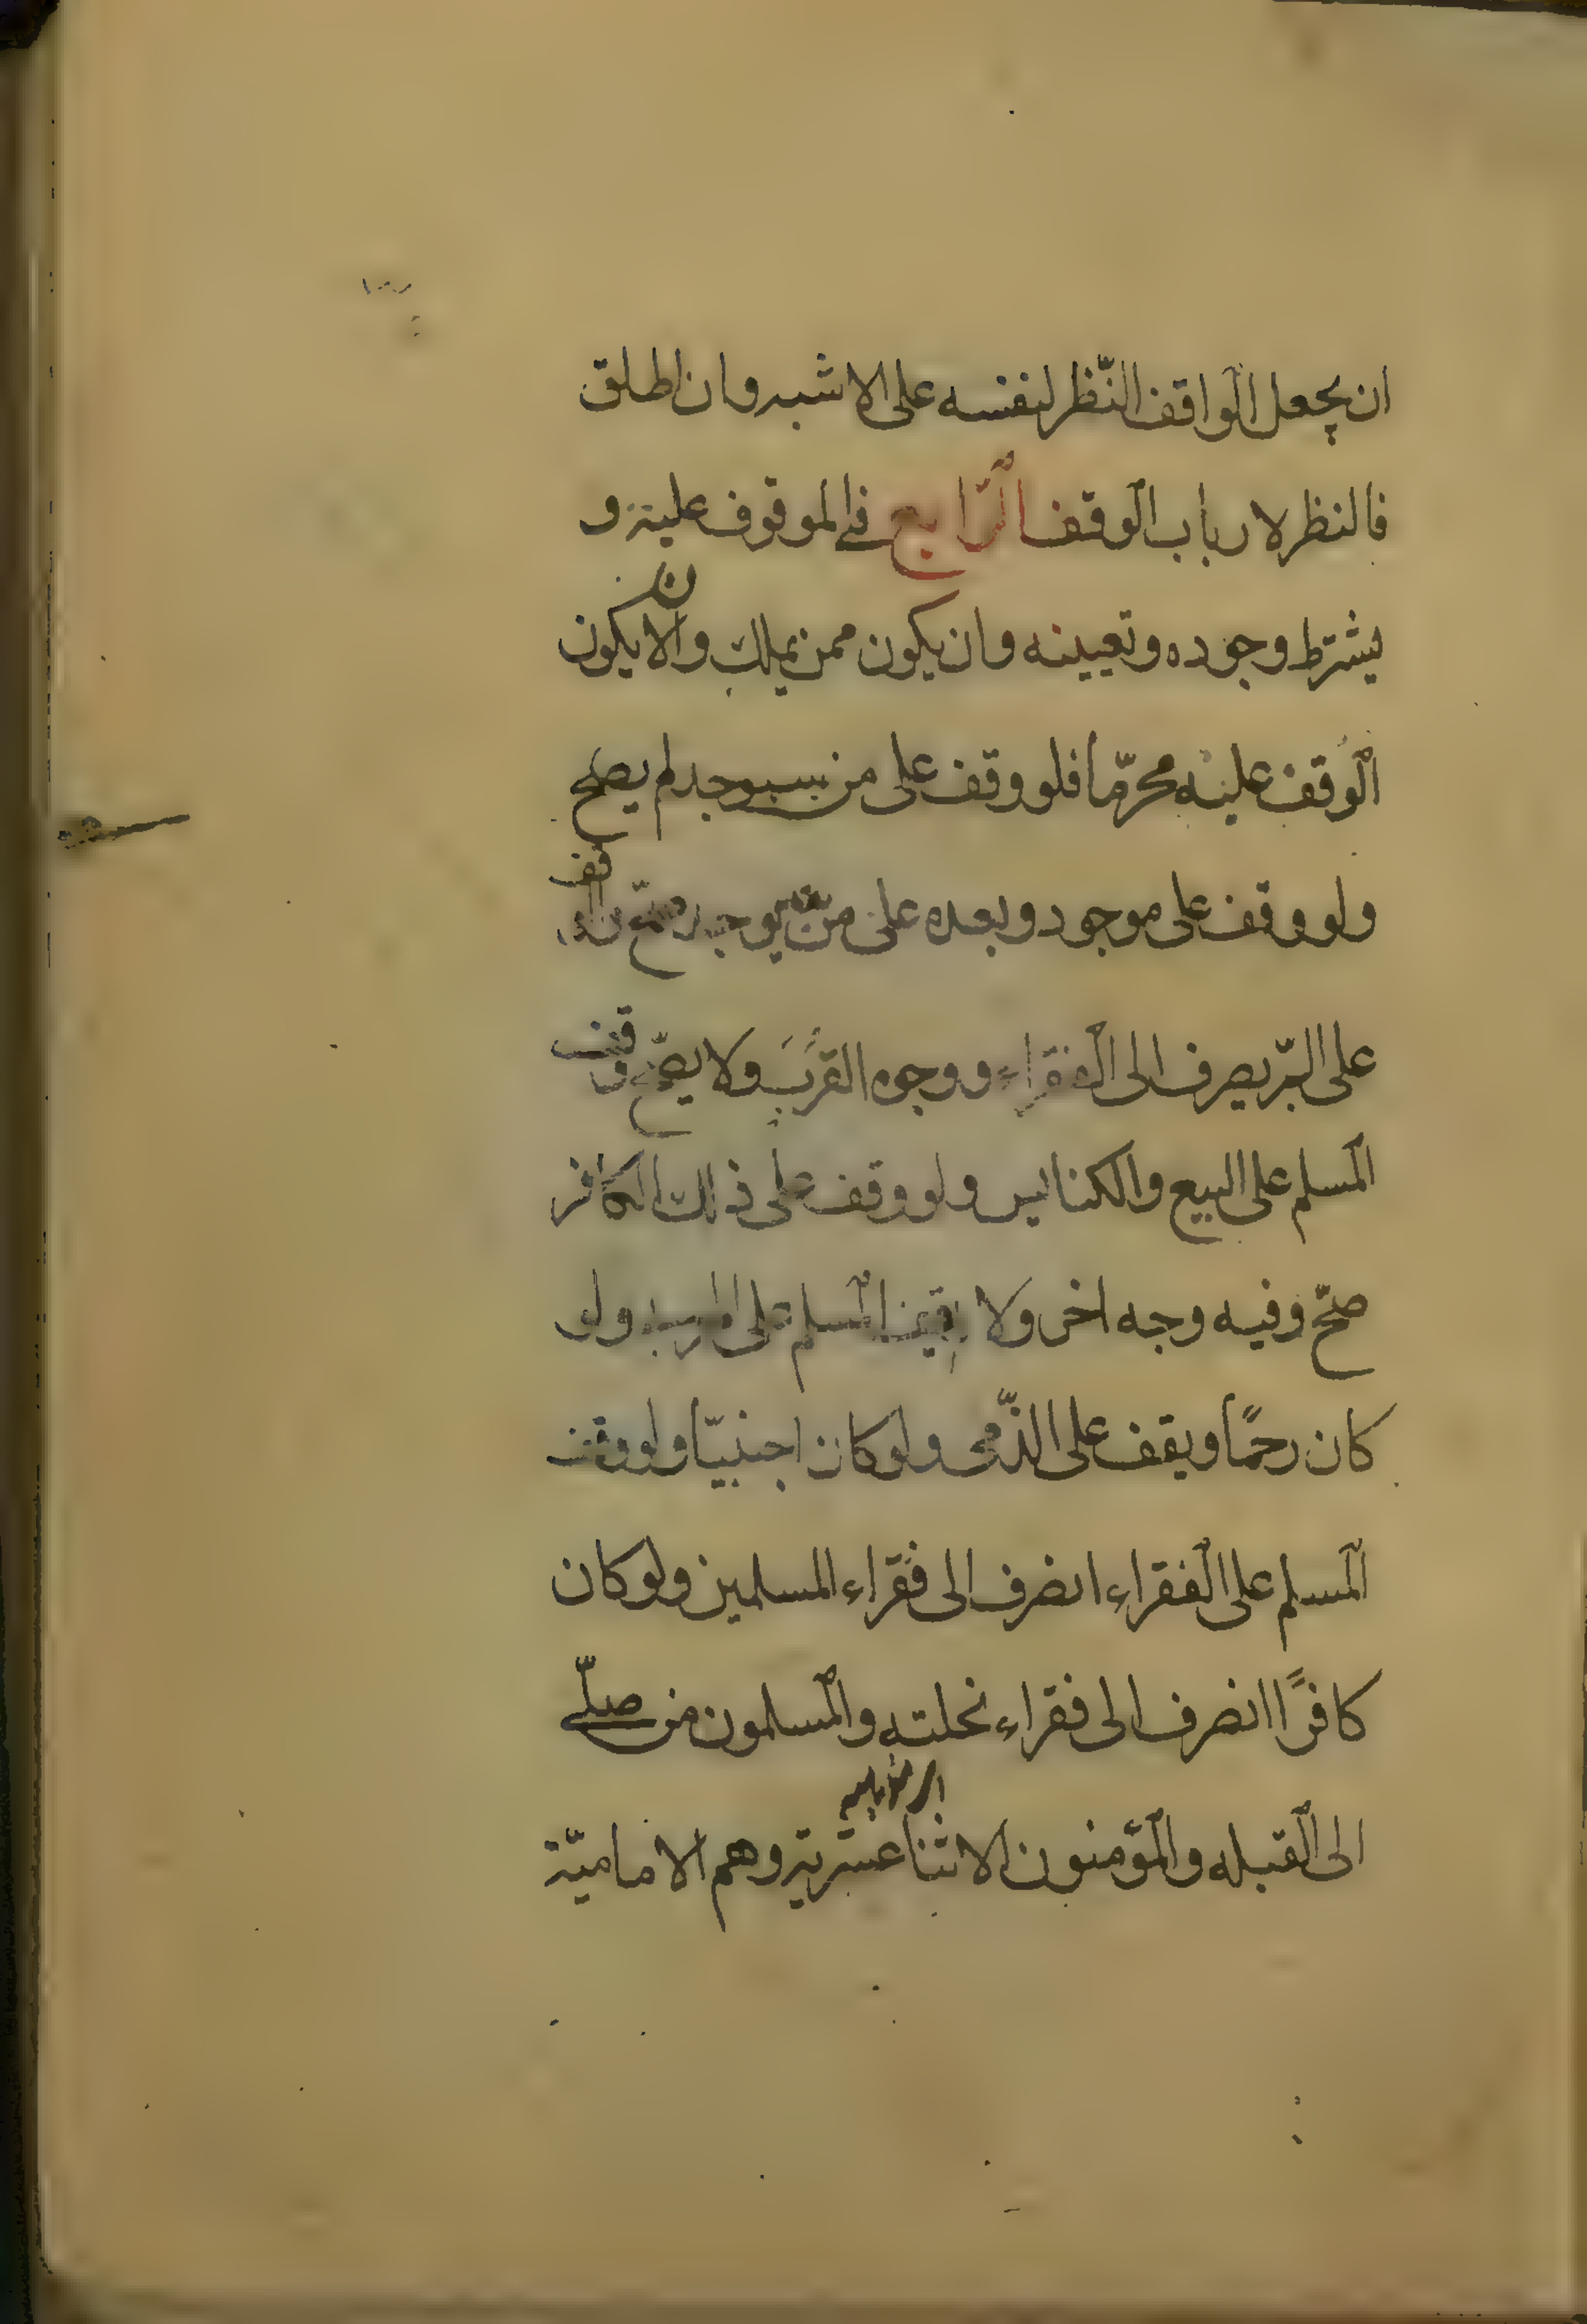 ان يجعل الواقف النّظر لنفسه على الاشبه وان اطلق
فالنظر لارباب الوقف الرّابع في الموقوف عليه و
يشترط وجوده وتعيينه وان يكون ممن يملك وان لا يكون
الوقف عليه محرّما فلو وقف على من سيوجد لم يصح
ولو وقف على موجود وبعده على من يوجد صحّ والوقف
على البّر يصرف الى الفقراء ووجوه القرَب ولا يصحّ وقف
المسلم على البيع والكنايس ولو وقف على ذلك الكافر
صحّ وفيه وجه اخر ولا يقف المسلم على ولو
كان رحمًا ويقف على الذّمى ولو كان اجنبيّا ولو وقف
المسلم على الفقراء انصرف الى فقراء المسلمين ولو كان
كافرًا انصرف الى فقراء نحلته والمسلمون من صلّى
الى القبله والمؤمنون الاثنا عشرية وهم الاماميّة